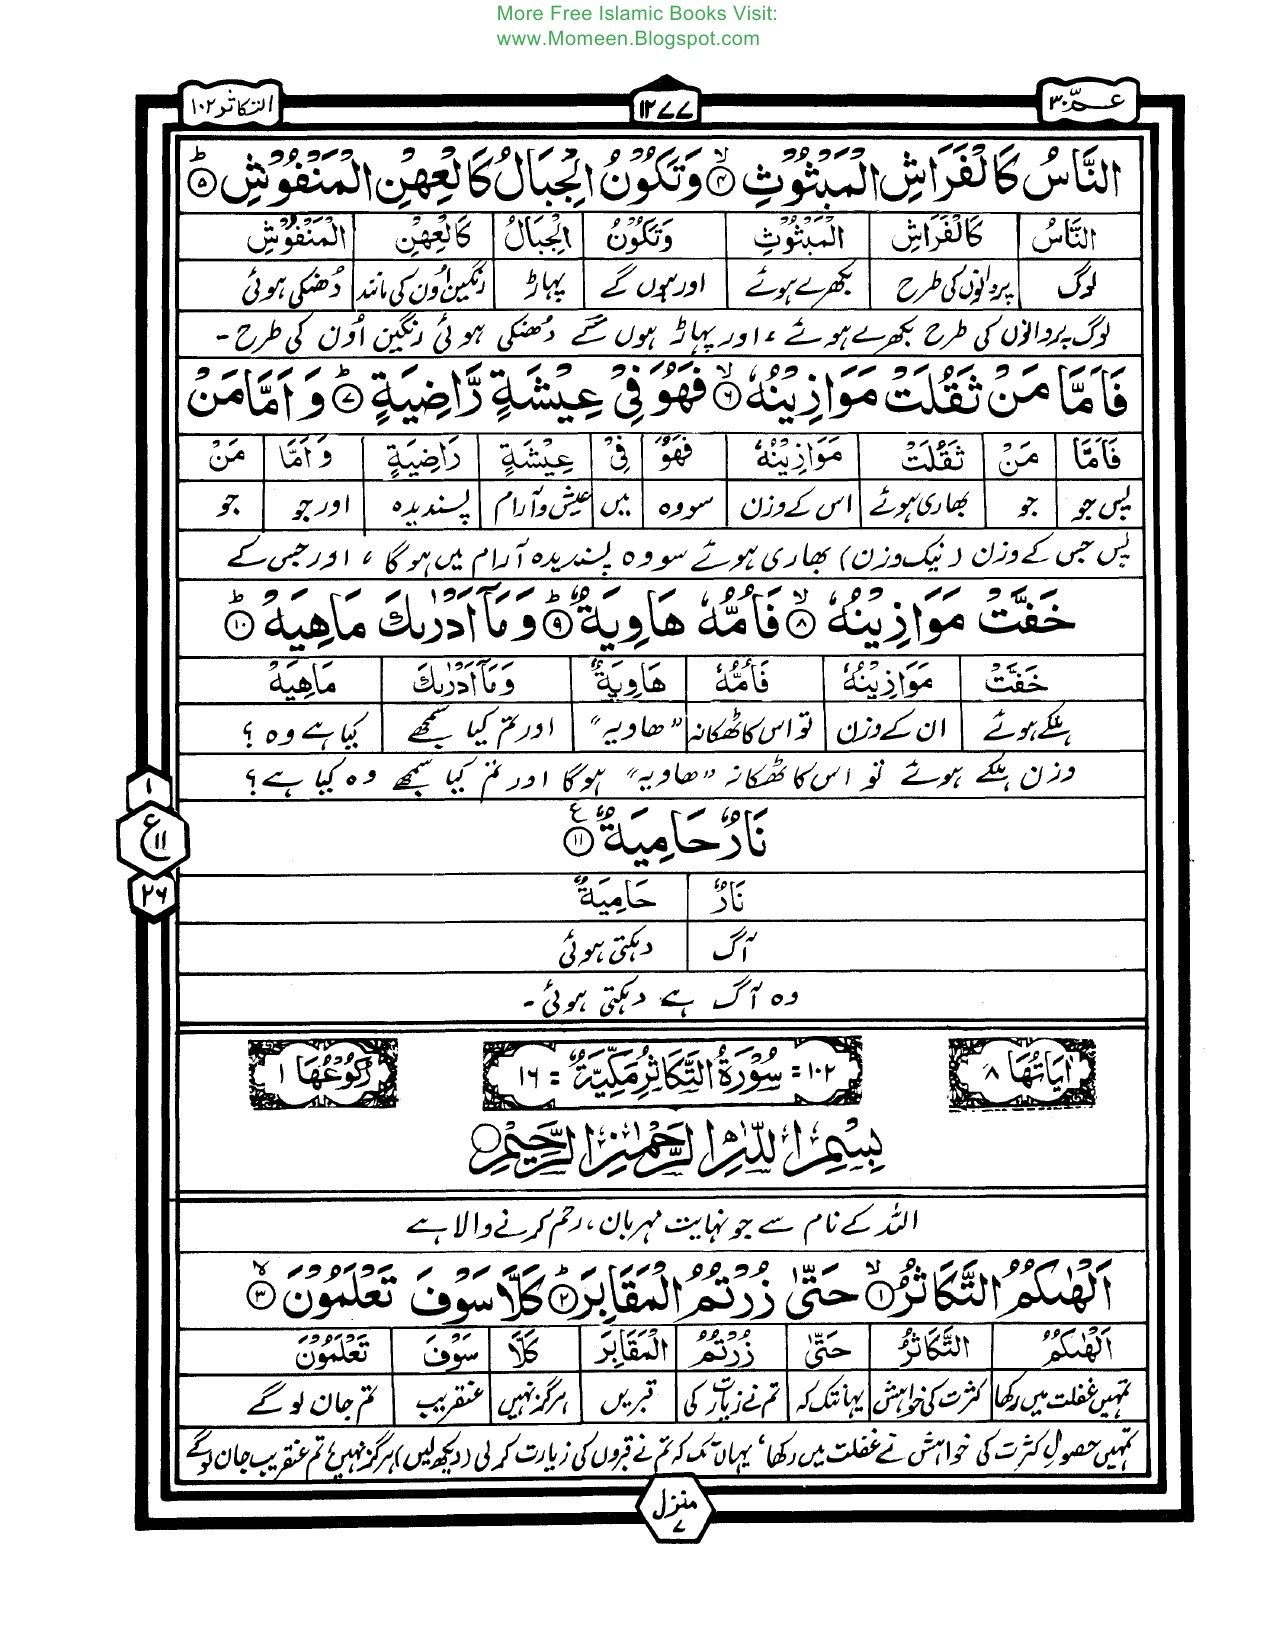 More Free Islamic Books Visit:
www.Momeen.Blogspot.com
عــمّ ۳۰
۱۲۷۷
التکاثر ۱۰۲
النَّاسُ كَالْفَرَاشِ الْمَبْثُوْثِ ۙ﴿۴﴾ وَتَكُوْنُ الْجِبَالُ كَالْعِهْنِ الْمَنْفُوْشِ ؕ﴿۵﴾
النَّاسُ كَالْفَرَاشِ الْمَبْثُوْثِ وَتَكُوْنُ الْجِبَالُ كَالْعِهْنِ الْمَنْفُوْشِ
لوگ پروانوں کی طرح بکھرے ہوئے اور ہوں گے پہاڑ رنگین اون کی مانند دُھنکی ہوئی
لوگ پروانوں کی طرح بکھرے ہوئے ، اور پہاڑ ہوں گے دُھنکی ہوئی رنگین اُون کی طرح -
فَاَمَّا مَنْ ثَقُلَتْ مَوَازِيْنُهٗ ۙ﴿۶﴾ فَهُوَ فِيْ عِيْشَةٍ رَّاضِيَةٍ ؕ﴿۷﴾ وَ اَمَّا مَنْ
فَاَمَّا مَنْ ثَقُلَتْ مَوَازِيْنُهٗ فَهُوَ فِيْ عِيْشَةٍ رَاضِيَةٍ وَ اَمَّا مَنْ
پس جو جو بھاری ہوئے اس کے وزن سو وہ میں عیش وآرام پسندیدہ اور جو جو
پس جس کے وزن (نیک وزن) بھاری ہوئے سو وہ پسندیدہ آرام میں ہوگا ، اور جس کے
خَفَّتْ مَوَازِيْنُهٗ ۙ﴿۸﴾ فَاُمُّهٗ هَاوِيَةٌ ؕ﴿۹﴾ وَمَاۤ اَدْرٰىكَ مَاهِيَهْ ؕ﴿۱۰﴾
خَفَّتْ مَوَازِيْنُهٗ فَاُمُّهٗ هَاوِيَةٌ وَمَاۤ اَدْرٰىكَ مَاهِيَهْ
ہلکے ہوئے ان کے وزن تو اس کا ٹھکانہ “ھاویہ” اور تم کیا سمجھے کیا ہے وہ ؟
وزن ہلکے ہوئے تو اس کا ٹھکانہ “ھاویہ” ہوگا اور تم کیا سمجھے وہ کیا ہے ؟
۱
ع ۱۱
۲۶
نَارٌ حَامِيَةٌ ﴿۱۱﴾
نَارٌ حَامِيَةٌ
آگ دہکتی ہوئی
وہ آگ ہے دہکتی ہوئی -
اٰيَاتُهَا ۸
۱۰۲ = سُوْرَةُ التَّكَاثُرِ مَكِّيَّةٌ = ۱۶
رُكُوْعُهَا ۱
بِسْمِ اللّٰهِ الرَّحْمٰنِ الرَّحِيْمِ
اللہ کے نام سے جو نہایت مہربان ، رحم کرنے والا ہے
اَلْهٰىكُمُ التَّكَاثُرُ ۙ﴿۱﴾ حَتّٰى زُرْتُمُ الْمَقَابِرَ ؕ﴿۲﴾ كَلَّا سَوْفَ تَعْلَمُوْنَ ۙ﴿۳﴾
اَلْهٰىكُمُ التَّكَاثُرُ حَتّٰى زُرْتُمُ الْمَقَابِرَ كَلَّا سَوْفَ تَعْلَمُوْنَ
تمہیں غفلت میں رکھا کثرت کی خواہش یہانتک کہ تم نے زیارت کی قبریں ہرگز نہیں عنقریب تم جان لو گے
تمہیں حصولِ کثرت کی خواہش نے غفلت میں رکھا، یہاں تک کہ تم نے قبروں کی زیارت کر لی (دیکھ لیں) ہرگز نہیں، تم عنقریب جان لو گے
منزل
۷